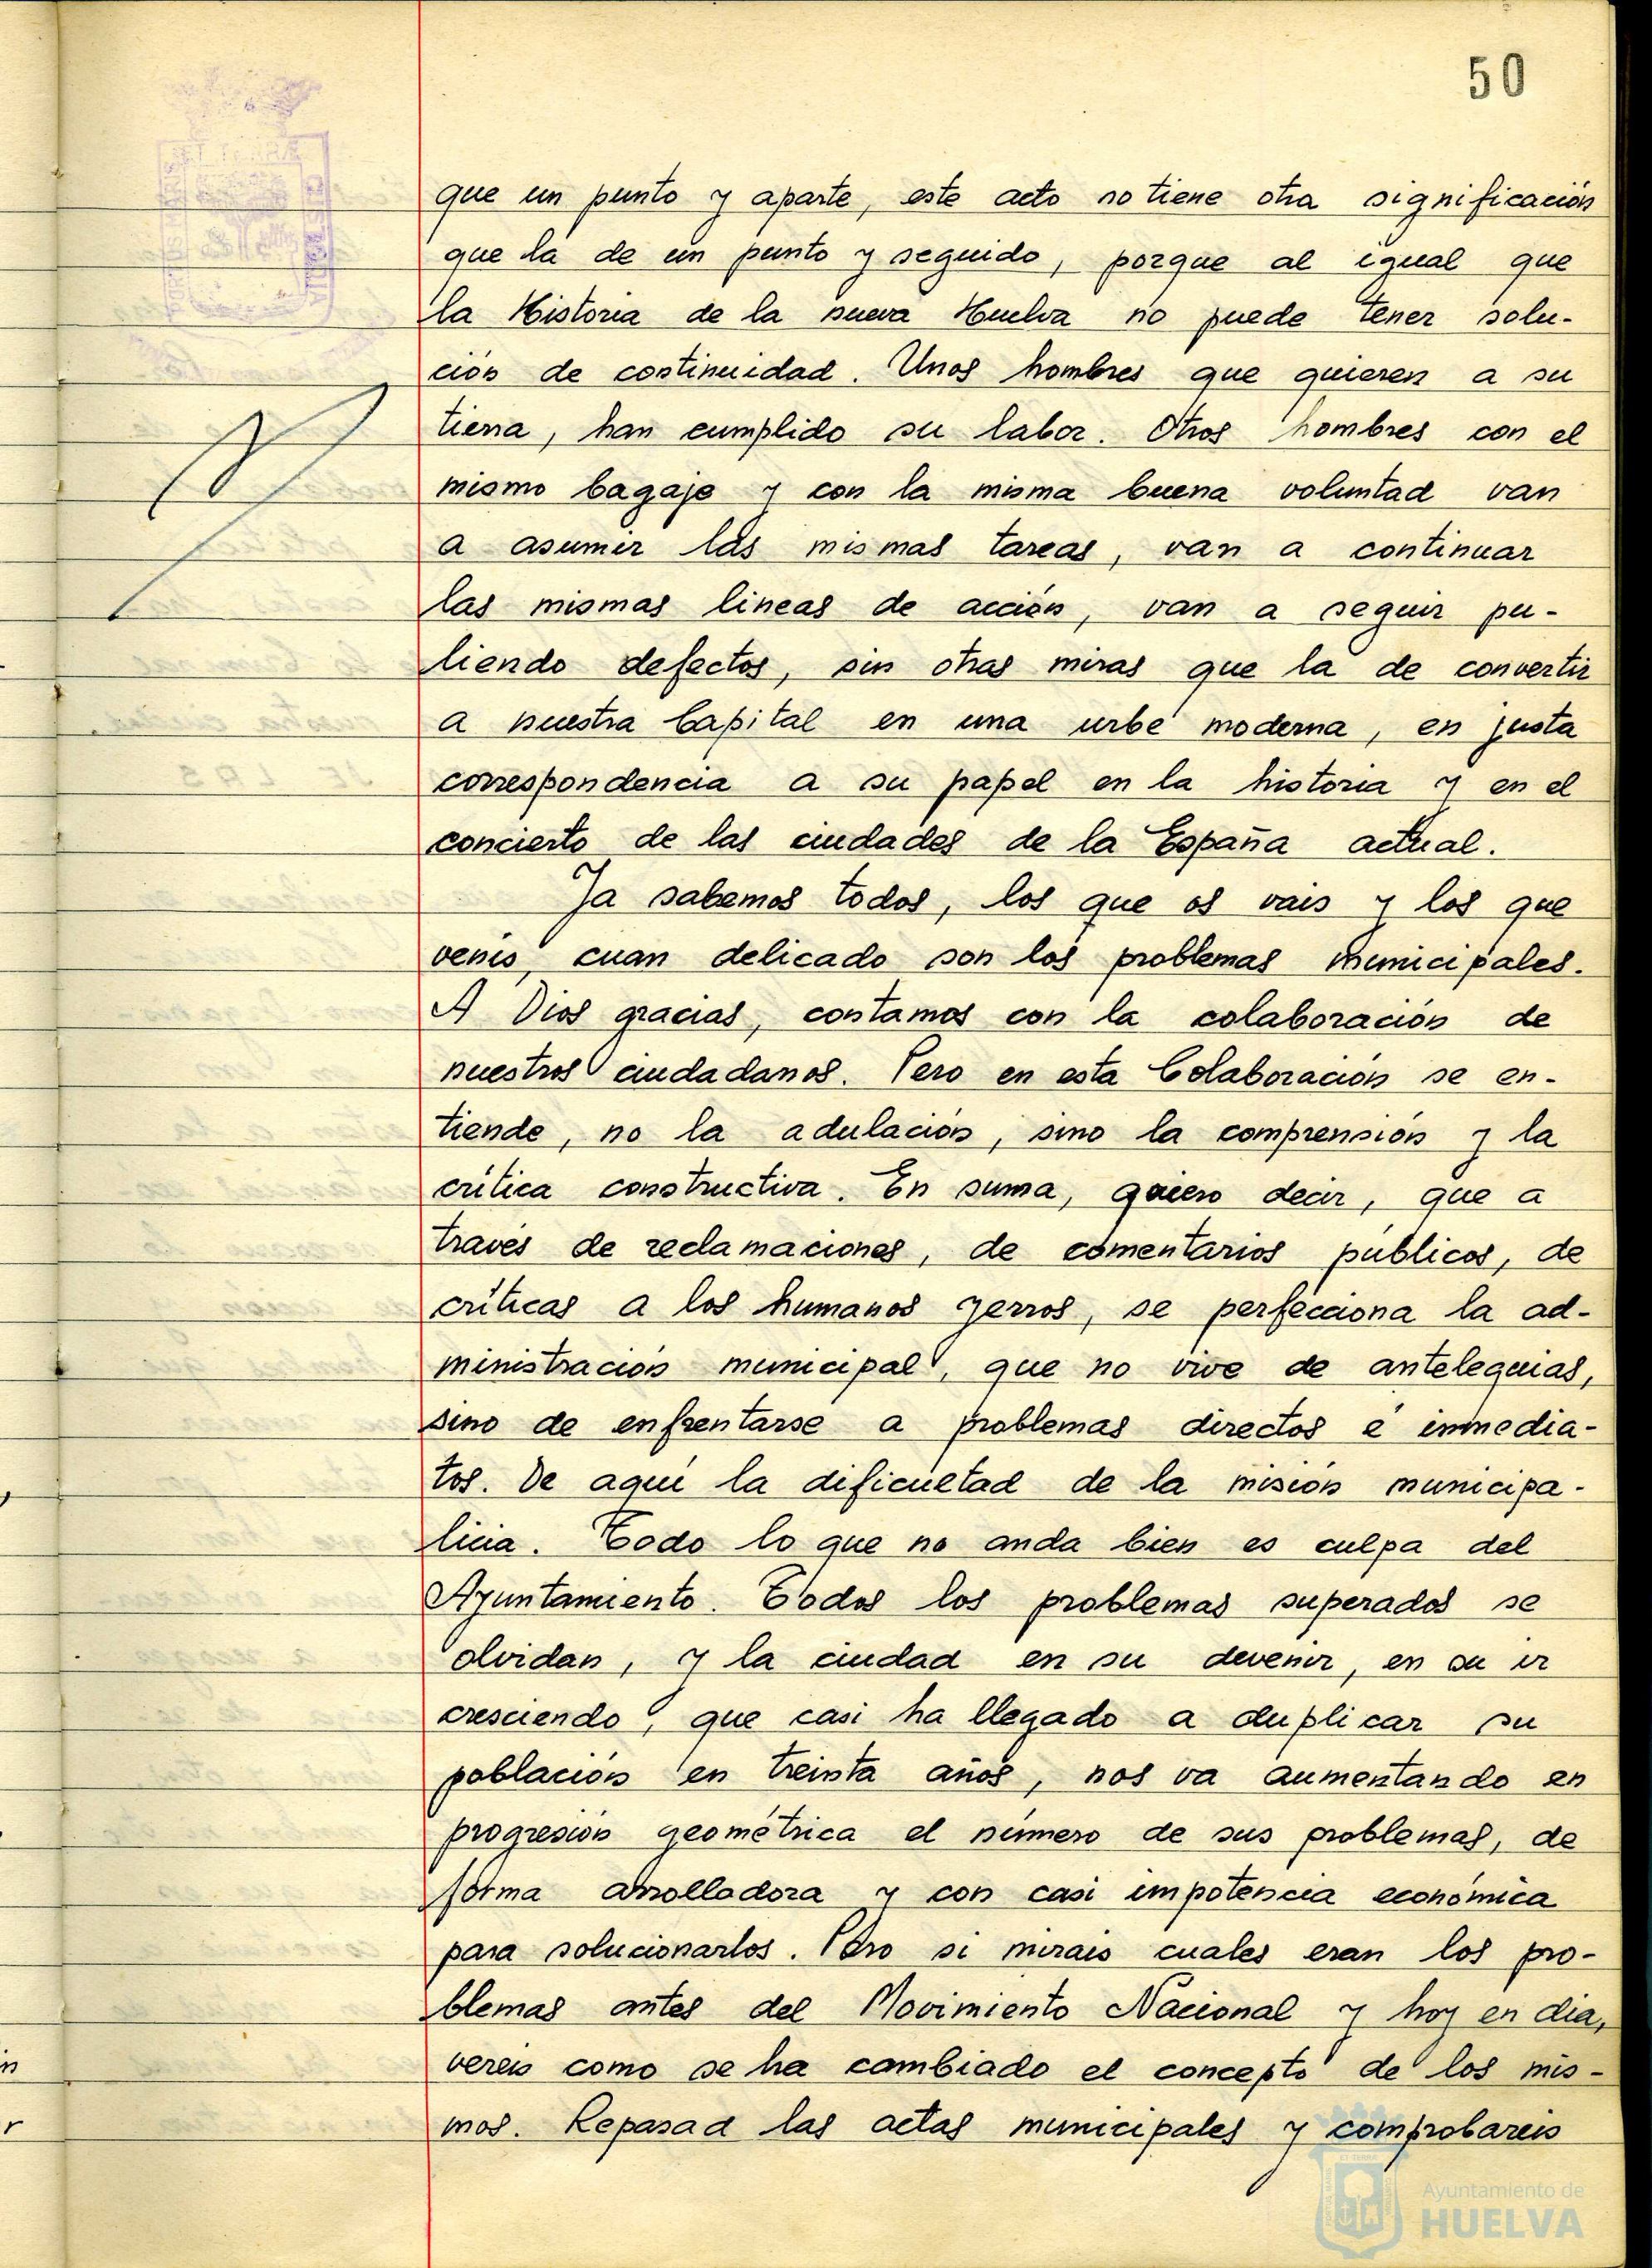 50
que un punto y aparte, este acto no tiene otra significación
que la de un punto y seguido, porque al igual que
la Historia de la nueva Huelva no puede tener solu-
ción de continuidad. Unos hombres que quieren a su
tierra, han cumplido su labor. Otros hombres con el
mismo bagaje y con la misma buena voluntad van
a asumir las mismas tareas, van a continuar
las mismas lineas de acción, van a seguir pu-
liendo defectos, sin otras miras que la de convertir
a nuestra Capital en una urbe moderna, en justa
correspondencia a su papel en la historia y en el
concierto de las ciudades de la España actual.
Ya sabemos todos, los que os vais y los que
venis, cuan delicado son los problemas municipales.
A Dios gracias, contamos con la colaboración de
nuestros ciudadanos. Pero en esta Colaboración se en-
tiende, no la adulación, sino la comprensión y la
crítica constructiva. En suma, quiero decir, que a
través de reclamaciones, de comentarios públicos, de
críticas a los humanos yerros, se perfecciona la ad-
ministración municipal, que no vive de antelequias,
sino de enfrentarse a problemas directos e inmedia-
tos. De aquí la dificultad de la misión municipa-
licia. Todo lo que no anda bien es culpa del
Ayuntamiento. Todos los problemas superados se
olvidan, y la ciudad en su devenir, en su ir
cresciendo, que casi ha llegado a duplicar su
población en treinta años, nos va aumentando en
progresión geométrica el número de sus problemas, de
forma arrolladora y con casi impotencia económica
para solucionarlos. Pero si mirais cuales eran los pro-
blemas antes del Movimiento Nacional y hoy en dia,
vereis como se ha cambiado el concepto de los mis-
mos. Repasad las actas municipales y comprobareis
Ayuntamiento de
HUELVA